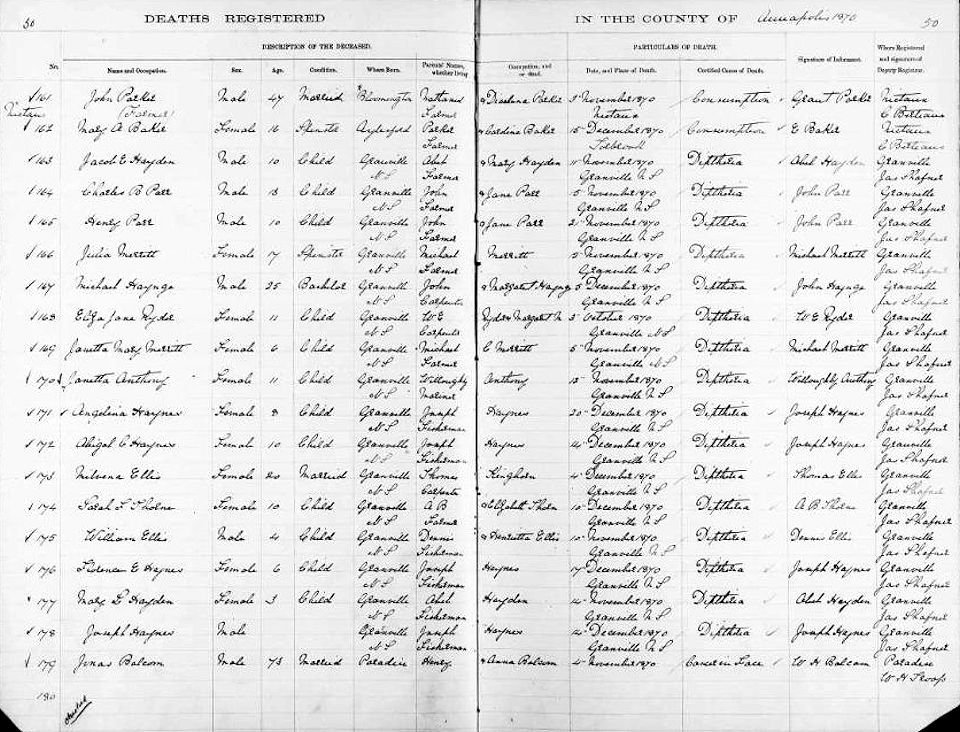 50 DEATHS REGISTERED IN THE COUNTY OF Annapolis 1870 50
DESCRIPTION OF THE DECEASED. PARTICULARS OF DEATH.
No. Name and Occupation. Sex. Age. Condition. Where Born. Parents' Names, whether living or dead. Occupation, and Date, and Place of Death. Certified Cause of Death. Signature of Informant. Where Registered and signature of Deputy Registrar.
161 John Parker Male 47 Married Bloomington Nathaniel Parker 3 November 1870 Consumption Grant Parker Nictaux
Nictaux (Farmer) Farmer Nictaux
162 Mary A Baker Female 16 Spinster Aylesford Parker & Caroline Baker 15 December 1870 Consumption E Baker Nictaux
Farmer
163 Jacob E Hayden Male 10 Child Granville Abel & Mary Hayden 11 November 1870 Diptheria Abel Hayden Granville
N S Farmer Granville N S Jas Shafner
164 Charles B Parr Male 13 Child Granville John & Jane Parr 5 November 1870 Diptheria John Parr Granville
N S Farmer Granville N S Jas Shafner
165 Henry Parr Male 10 Child Granville John & Jane Parr 2 November 1870 Diptheria John Parr Granville
N S Farmer Granville N S Jas Shafner
166 Julia Merritt Female 17 Spinster Granville Michael Merritt 5 November 1870 Diptheria Michael Merritt Granville
N S Farmer Granville N S Jas Shafner
167 Michael Haynes Male 25 Bachelor Granville John & Margaret Haynes 5 December 1870 Diptheria John Haynes Granville
N S Carpenter Granville N S Jas Shafner
168 Eliza Jane Ryder Female 11 Child Granville W E Ryder & Margaret A 3 October 1870 Diptheria W E Ryder Granville
N S Carpenter Granville N S Jas Shafner
169 Janetta Mary Merritt Female 6 Child Granville Michael C Merritt 5 November 1870 Diptheria Michael Merritt Granville
N S Farmer Granville N S Jas Shafner
170 Janetta Anthony Female 11 Child Granville Willoughby Anthony 15 November 1870 Diptheria Willoughby Anthony Granville
N S Mariner Granville N S Jas Shafner
171 Angelina Haynes Female 8 Child Granville Joseph Haynes 20 December 1870 Diptheria Joseph Haynes Granville
N S Fisherman Granville N S Jas Shafner
172 Abigal C Haynes Female 10 Child Granville Joseph Haynes 4 December 1870 Diptheria Joseph Haynes Granville
N S Fisherman Granville N S Jas Shafner
173 Ellis Female 20 Married Granville Thomas Kinghorn 4 December 1870 Diptheria Thomas Ellis Granville
N S Carpenter Granville N S Jas Shafner
174 Sarah F Thorne Female 10 Child Granville A B & Elizabeth Thorn 10 December 1870 Diptheria A B Thorne Granville
N S Farmer Granville N S Jas Shafner
175 William Ellis Male 4 Child Granville Dennis & Henrietta Ellis 10 November 1870 Diptheria Dennis Ellis Granville
N S Fisherman Granville N S Jas Shafner
176 Florence E Haynes Female 6 Child Granville Joseph Haynes 17 December 1870 Diptheria Joseph Haynes Granville
N S Fisherman Granville N S Jas Shafner
177 Mary L Hayden Female 3 Child Granville Abel Hayden 14 November 1870 Diptheria Abel Hayden Granville
N S Fisherman Granville N S Jas Shafner
178 Joseph Haynes Male Granville Joseph Haynes December 1870 Diptheria Joseph Haynes Granville
N S Fisherman Granville N S Jas Shafner
179 Jonas Balcom Male 73 Married Paradise Henry & Anna Balcom 4 November 1870 Cancer in Face W H Balcom Paradise
W H Troop
180